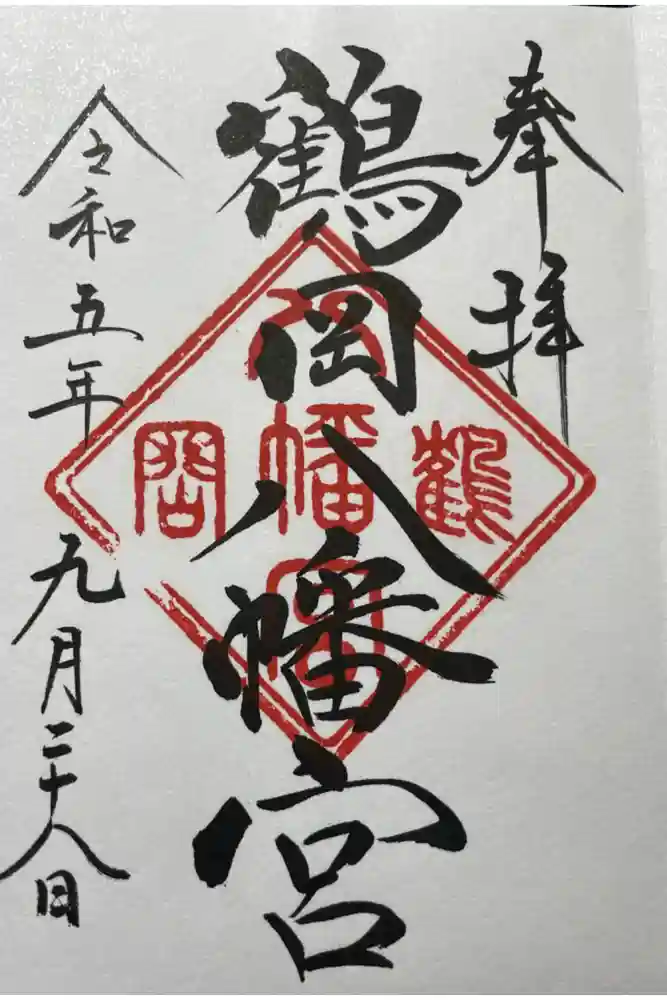 奉拝
鶴岡八幡宮
令和五年九月二十八日
鶴
八幡宮
岡